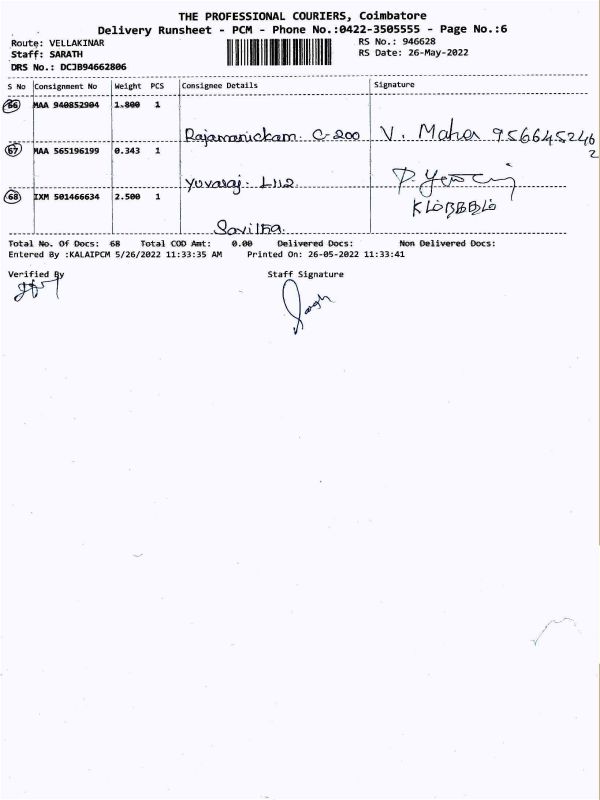 THE PROFESSIONAL COURIERS, Coimbatore
Delivery Runsheet - PCM - Phone No.:0422-3505555 - Page No.:6
Route: VELLAKINAR
Staff: SARATH
DRS No.: DCJB94662806
RS No.: 946628
RS Date: 26-May-2022
S No Consignment No Weight PCS Consignee Details Signature
66 MAA 940852904 1.800 1
Rajamanickam. C-200 V. Maher 9566452462
67 MAA 565196199 0.343 1
Yuvaraj. L112.
68 IXM 501466634 2.500 1
Savitha.
Total No. Of Docs: 68 Total COD Amt: 0.00 Delivered Docs: Non Delivered Docs:
Entered By :KALAIPCM 5/26/2022 11:33:35 AM Printed On: 26-05-2022 11:33:41
Verified By Staff Signature